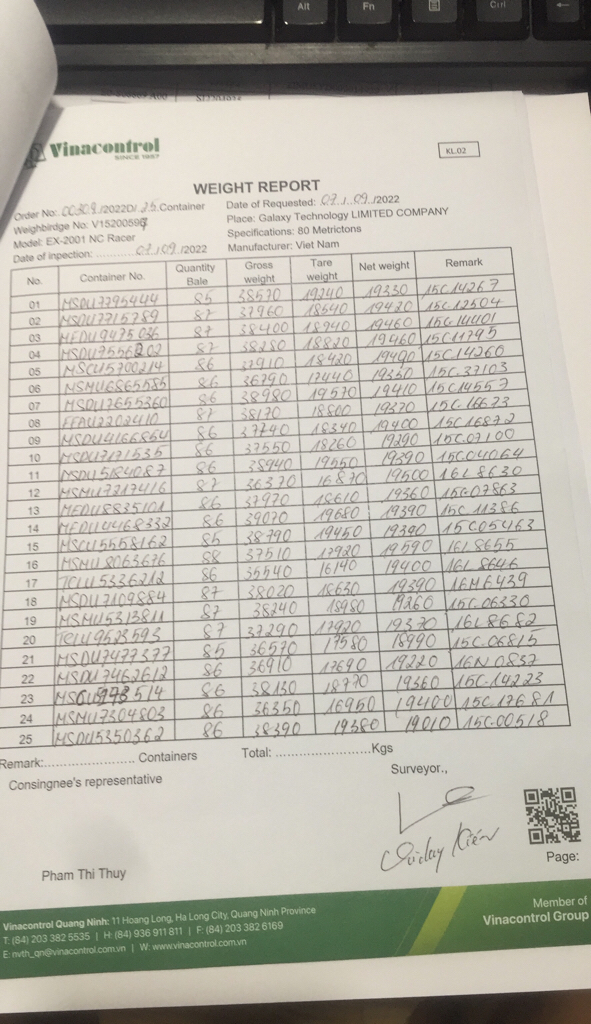 Alt
Fn
Ctrl
Vinacontrol
SINCE 1957
KL.02
WEIGHT REPORT
Order No: 00309/2022D/25 Container
Date of Requested: 07/09/2022
Weighbirdge No: V1520059
Place: Galaxy Technology LIMITED COMPANY
Model: EX-2001 NC Racer
Specifications: 80 Metrictons
Date of inpection: 07/09/2022
Manufacturer: Viet Nam
No. Container No. Quantity Bale Gross weight Tare weight Net weight Remark
01 MSDU7795444 85 38570 19240 19330 15C14267
02 MSDU7715789 87 37960 18540 19420 15C12504
03 MEDU9475036 87 38400 18940 19460 15C14401
04 MSDU7556202 87 38280 18820 19460 15C11795
05 MSCU5700214 86 37910 18420 19490 15C14260
06 NSMU6865585 86 36790 17440 19350 15C.37103
07 MSDU7655360 86 38980 19570 19410 15C14557
08 FFAU2202410 87 38170 18800 19370 15C.16673
09 MSDU4166864 86 37740 18340 19400 15C16872
10 MSDU7171535 86 37550 18260 19290 15C.07100
11 MSDU5184087 86 38940 19550 19390 15C04064
12 MSMU7217416 87 36370 16870 19500 16L8630
13 MEDU8835101 86 37970 18610 19360 15C.07863
14 MEDU4468332 86 39070 19680 19390 15C.11386
15 MSCU5558162 85 38790 19450 19390 15C05463
16 MSMU8063676 88 37510 17920 19590 16L8655
17 TCLU5336212 86 35540 16140 19400 16L8646
18 MSDU7109884 87 38020 18630 19390 16M6439
19 MSMU5313811 87 38240 18980 19260 15C.06330
20 TCLU9523593 87 37290 17920 19370 16L8682
21 MSDU7477377 85 36570 17580 18990 15C.06815
22 MSDU7462612 86 36910 17690 19220 16N0837
23 514 86 38130 18770 19360 15C.14223
24 MSMU7304803 86 36350 16950 19400 15C.17681
25 MSDU5350362 86 38390 19380 19010 15C.00518
Remark:........................ Containers Total: ............................Kgs
Consingnee's representative
Surveyor.,
Page:
Pham Thi Thuy
Vinacontrol Quang Ninh: 11 Hoang Long, Ha Long City, Quang Ninh Province
T: (84) 203 382 5535 | H: (84) 936 911 811 | F: (84) 203 382 6169
E: nvth_qn@vinacontrol.com.vn | W: www.vinacontrol.com.vn
Member of
Vinacontrol Group